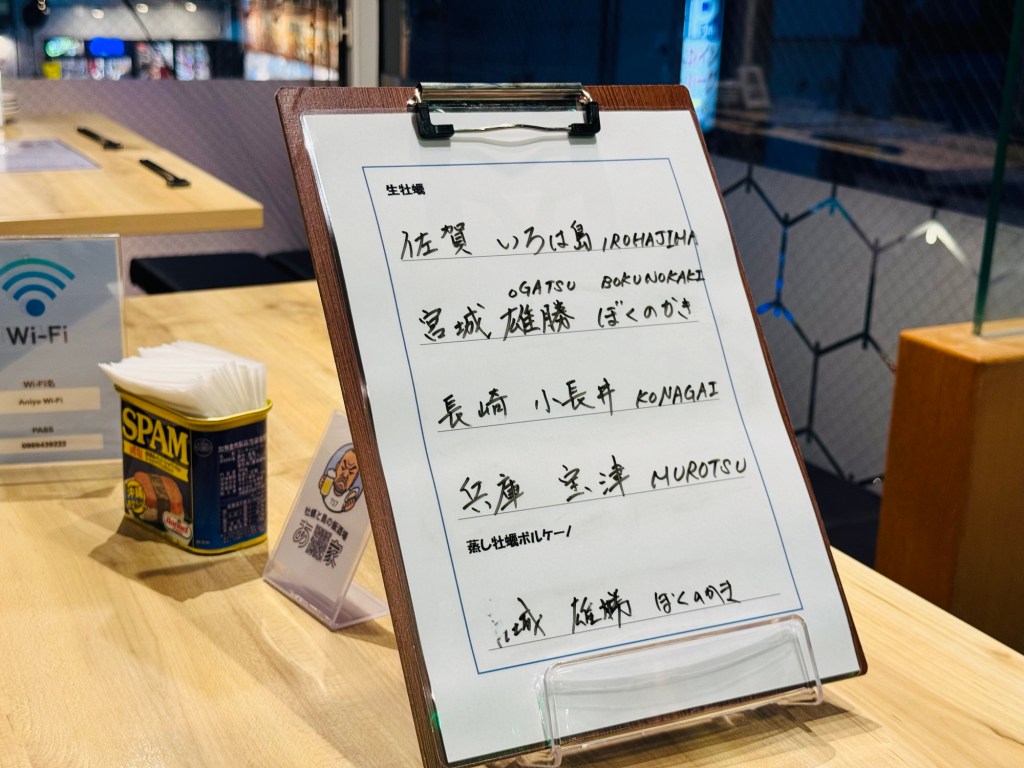 生牡蠣
佐賀 いろは島 IROHAJIMA
OGATSU BOKUNOKAKI
宮城 雄勝 ぼくのかき
長崎 小長井 KONAGAI
兵庫 室津 MUROTSU
蒸し牡蠣ボルケーノ
城 雄勝 ぼくのかき
Wi-Fi
Wi-Fi名
Aniya Wi-Fi
PASS
SPAM
Hormel
牡蠣と島の居酒場
家